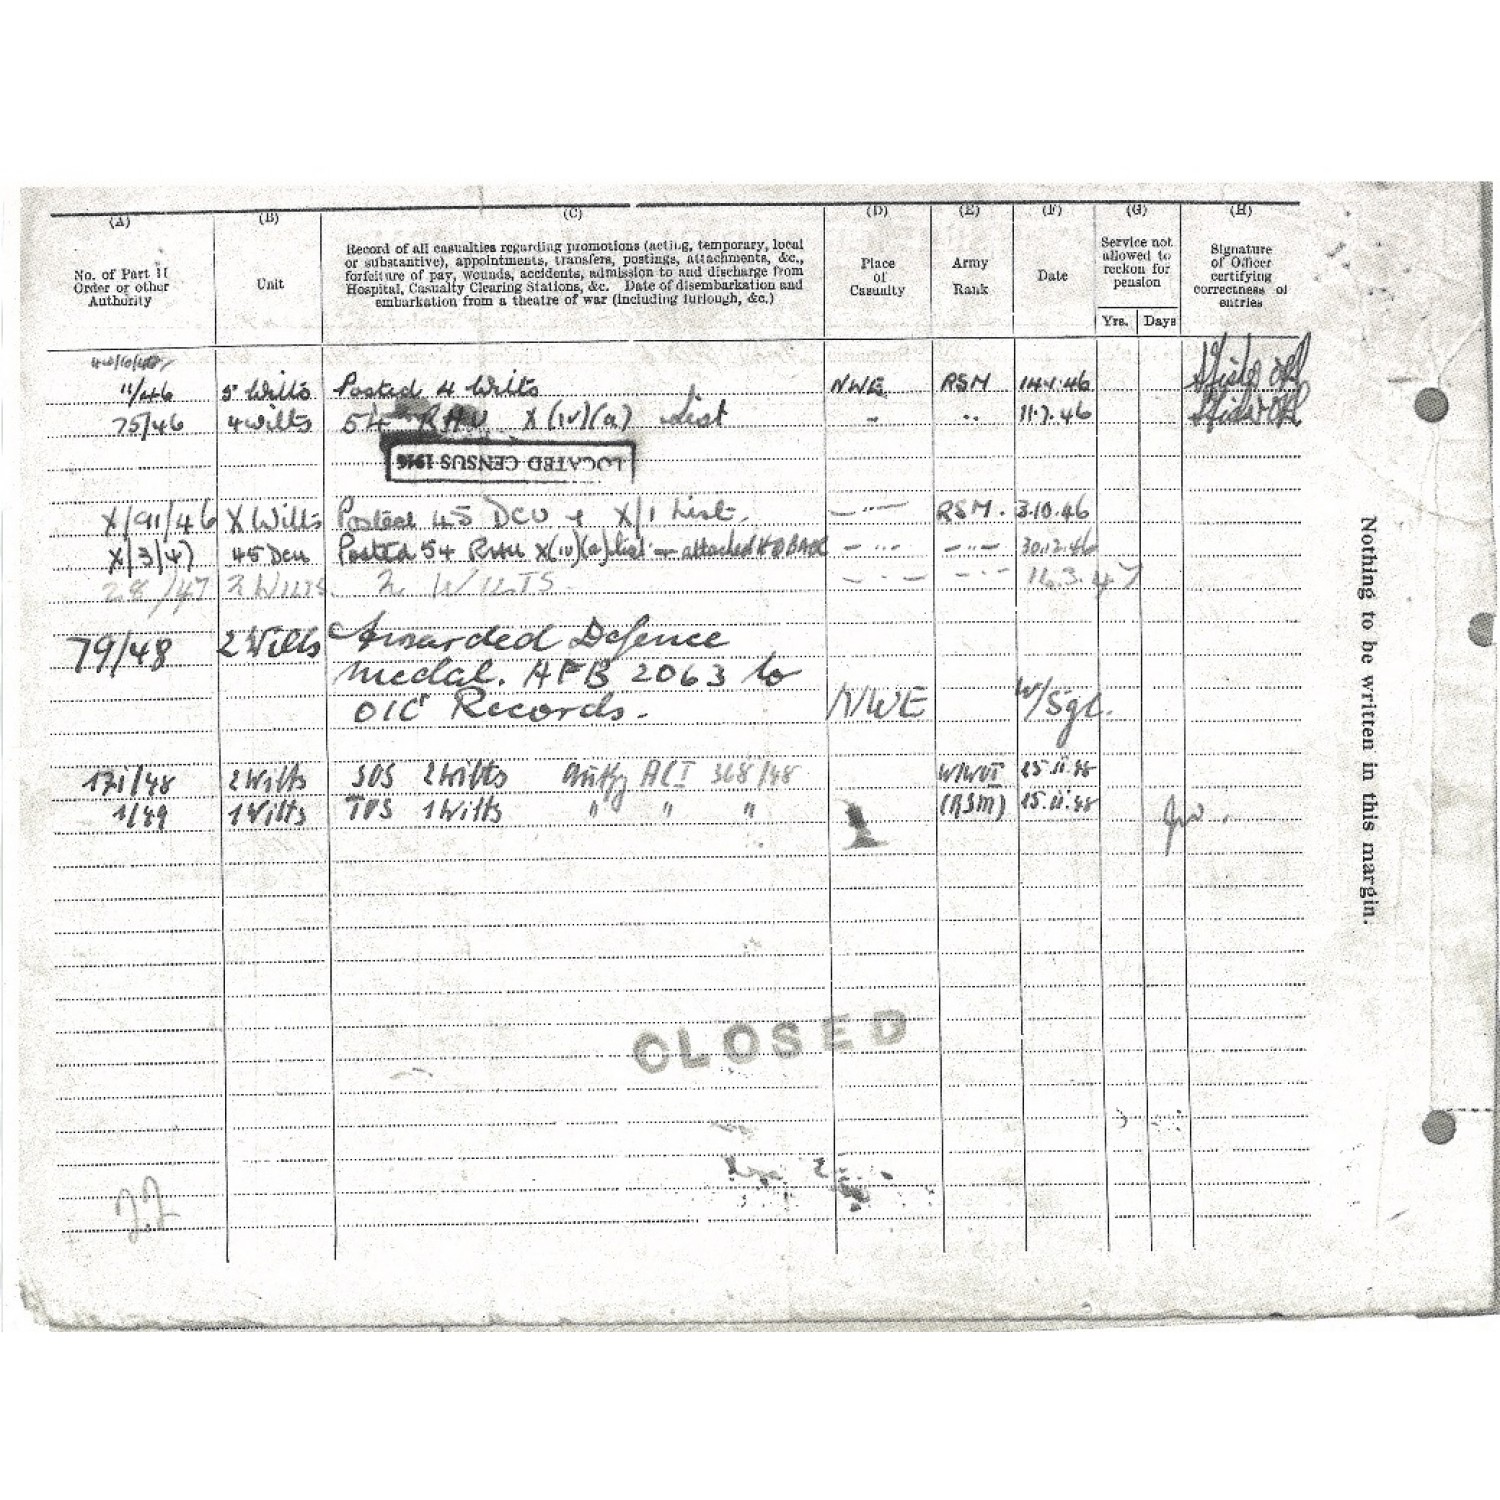 (A) (B) (C) (D) (E) (F) (G) (H)
No. of Part II Order or other Authority
Unit
Record of all casualties regarding promotions (acting, temporary, local
or substantive), appointments, transfers, postings, attachments, &c.,
forfeiture of pay, wounds, accidents, admission to and discharge from
Hospital, Casualty Clearing Stations, &c. Date of disembarkation and
embarkation from a theatre of war (including furlough, &c.)
Place of Casualty
Army Rank
Date
Service not allowed to reckon for pension
Yrs. Days
Signature of Officer certifying correctness of entries
11/46 5 Wilts Posted 4 Wilts NWE RSM 14.1.46
75/46 4 Wilts 54 RHU X (iv)(a) List " " 11.7.46
LOCATED CENSUS 1946
X/91/46 X Wilts Posted 45 DCU & X/1 List. — " — RSM. 3.10.46
X/3/47 45 DCU Posted 54 RHU X(iv)(a) list — attached HQ BAOR — " — — " — 30.12.46
28/47 2 WILTS 2 WILTS. — " — — " — 14.3.47
79/48 2 Wilts Awarded Defence
medal. AFB 2063 to
OIC Records. NWE W/Sgt.
171/48 2 Wilts SOS 2 Wilts Authy ACI 368/48 W/WOI 25.11.48
1/49 1 Wilts TOS 1 Wilts " " " (RSM) 15.11.48
CLOSED
22
Nothing to be written in this margin.